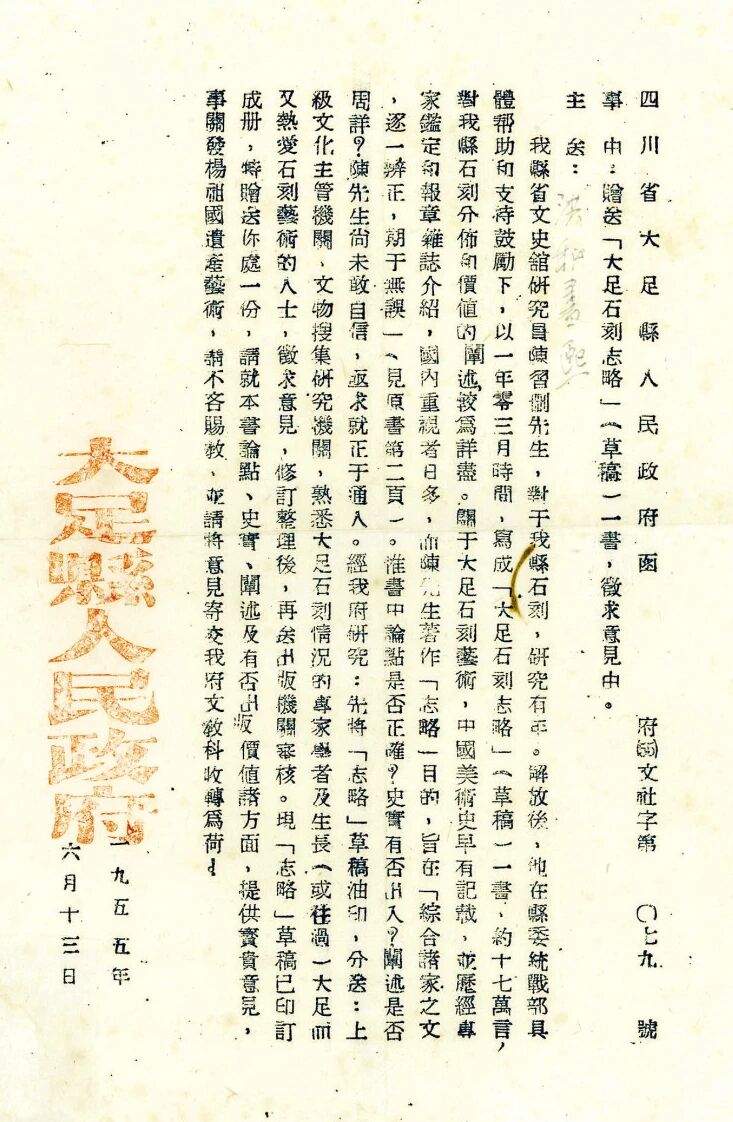 四川省大足縣人民政府函　府㈤文社字第〇七九號
事由：贈送「大足石刻志略」（草稿）一書，徵求意見由。
主送：
我縣省文史舘研究員陳習刪先生，對于我縣石刻，研究有年。解放後，他在縣委統戰部具
體帮助和支持鼓勵下，以一年零三月時間，寫成「大足石刻志略」（草稿）一書、約十七萬言，
對我縣石刻分佈和價値的闡述，較爲詳盡。關于大足石刻藝術，中國美術史早有記載，並歷經專
家鑑定和報章雜誌介紹，國內重視者日多，而陳先生著作「志略」目的，旨在「綜合諸家之文
，逐一辨正，期于無誤」（見原書第二頁）。惟書中論點是否正確？史實有否出入？闡述是否
周詳？陳先生尙未敢自信，亟求就正于通人。經我府研究：先將「志略」草稿油印，分送：上
級文化主管機關、文物搜集研究機關，熟悉大足石刻情況的專家學者及生長（或住過）大足而
又熱愛石刻藝術的人士，徵求意見，修訂整理後，再送出版機關審核。現「志略」草稿已印訂
成册，特贈送你處一份，請就本書論點、史實、闡述及有否出版價値諸方面，提供寶貴意見，
事關發楊祖國遺產藝術，請不吝賜敎，並請將意見寄交我府文敎科收轉爲荷！
大足縣人民政府
一九五五年
六月十三日